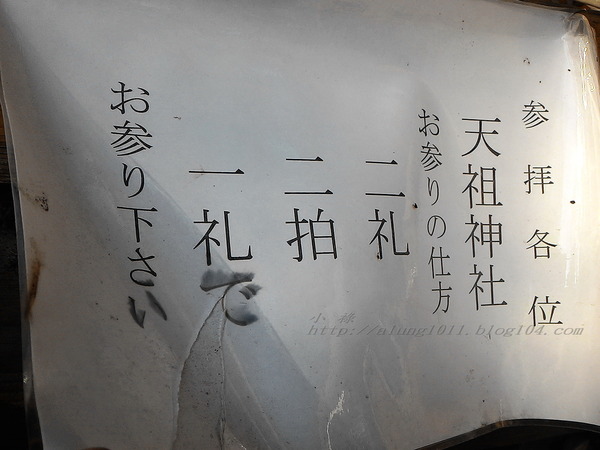 参拝各位
天祖神社
お参りの仕方
二礼
二拍
一礼で
お参り下さい
小綠
http://alung1011.blog104.com